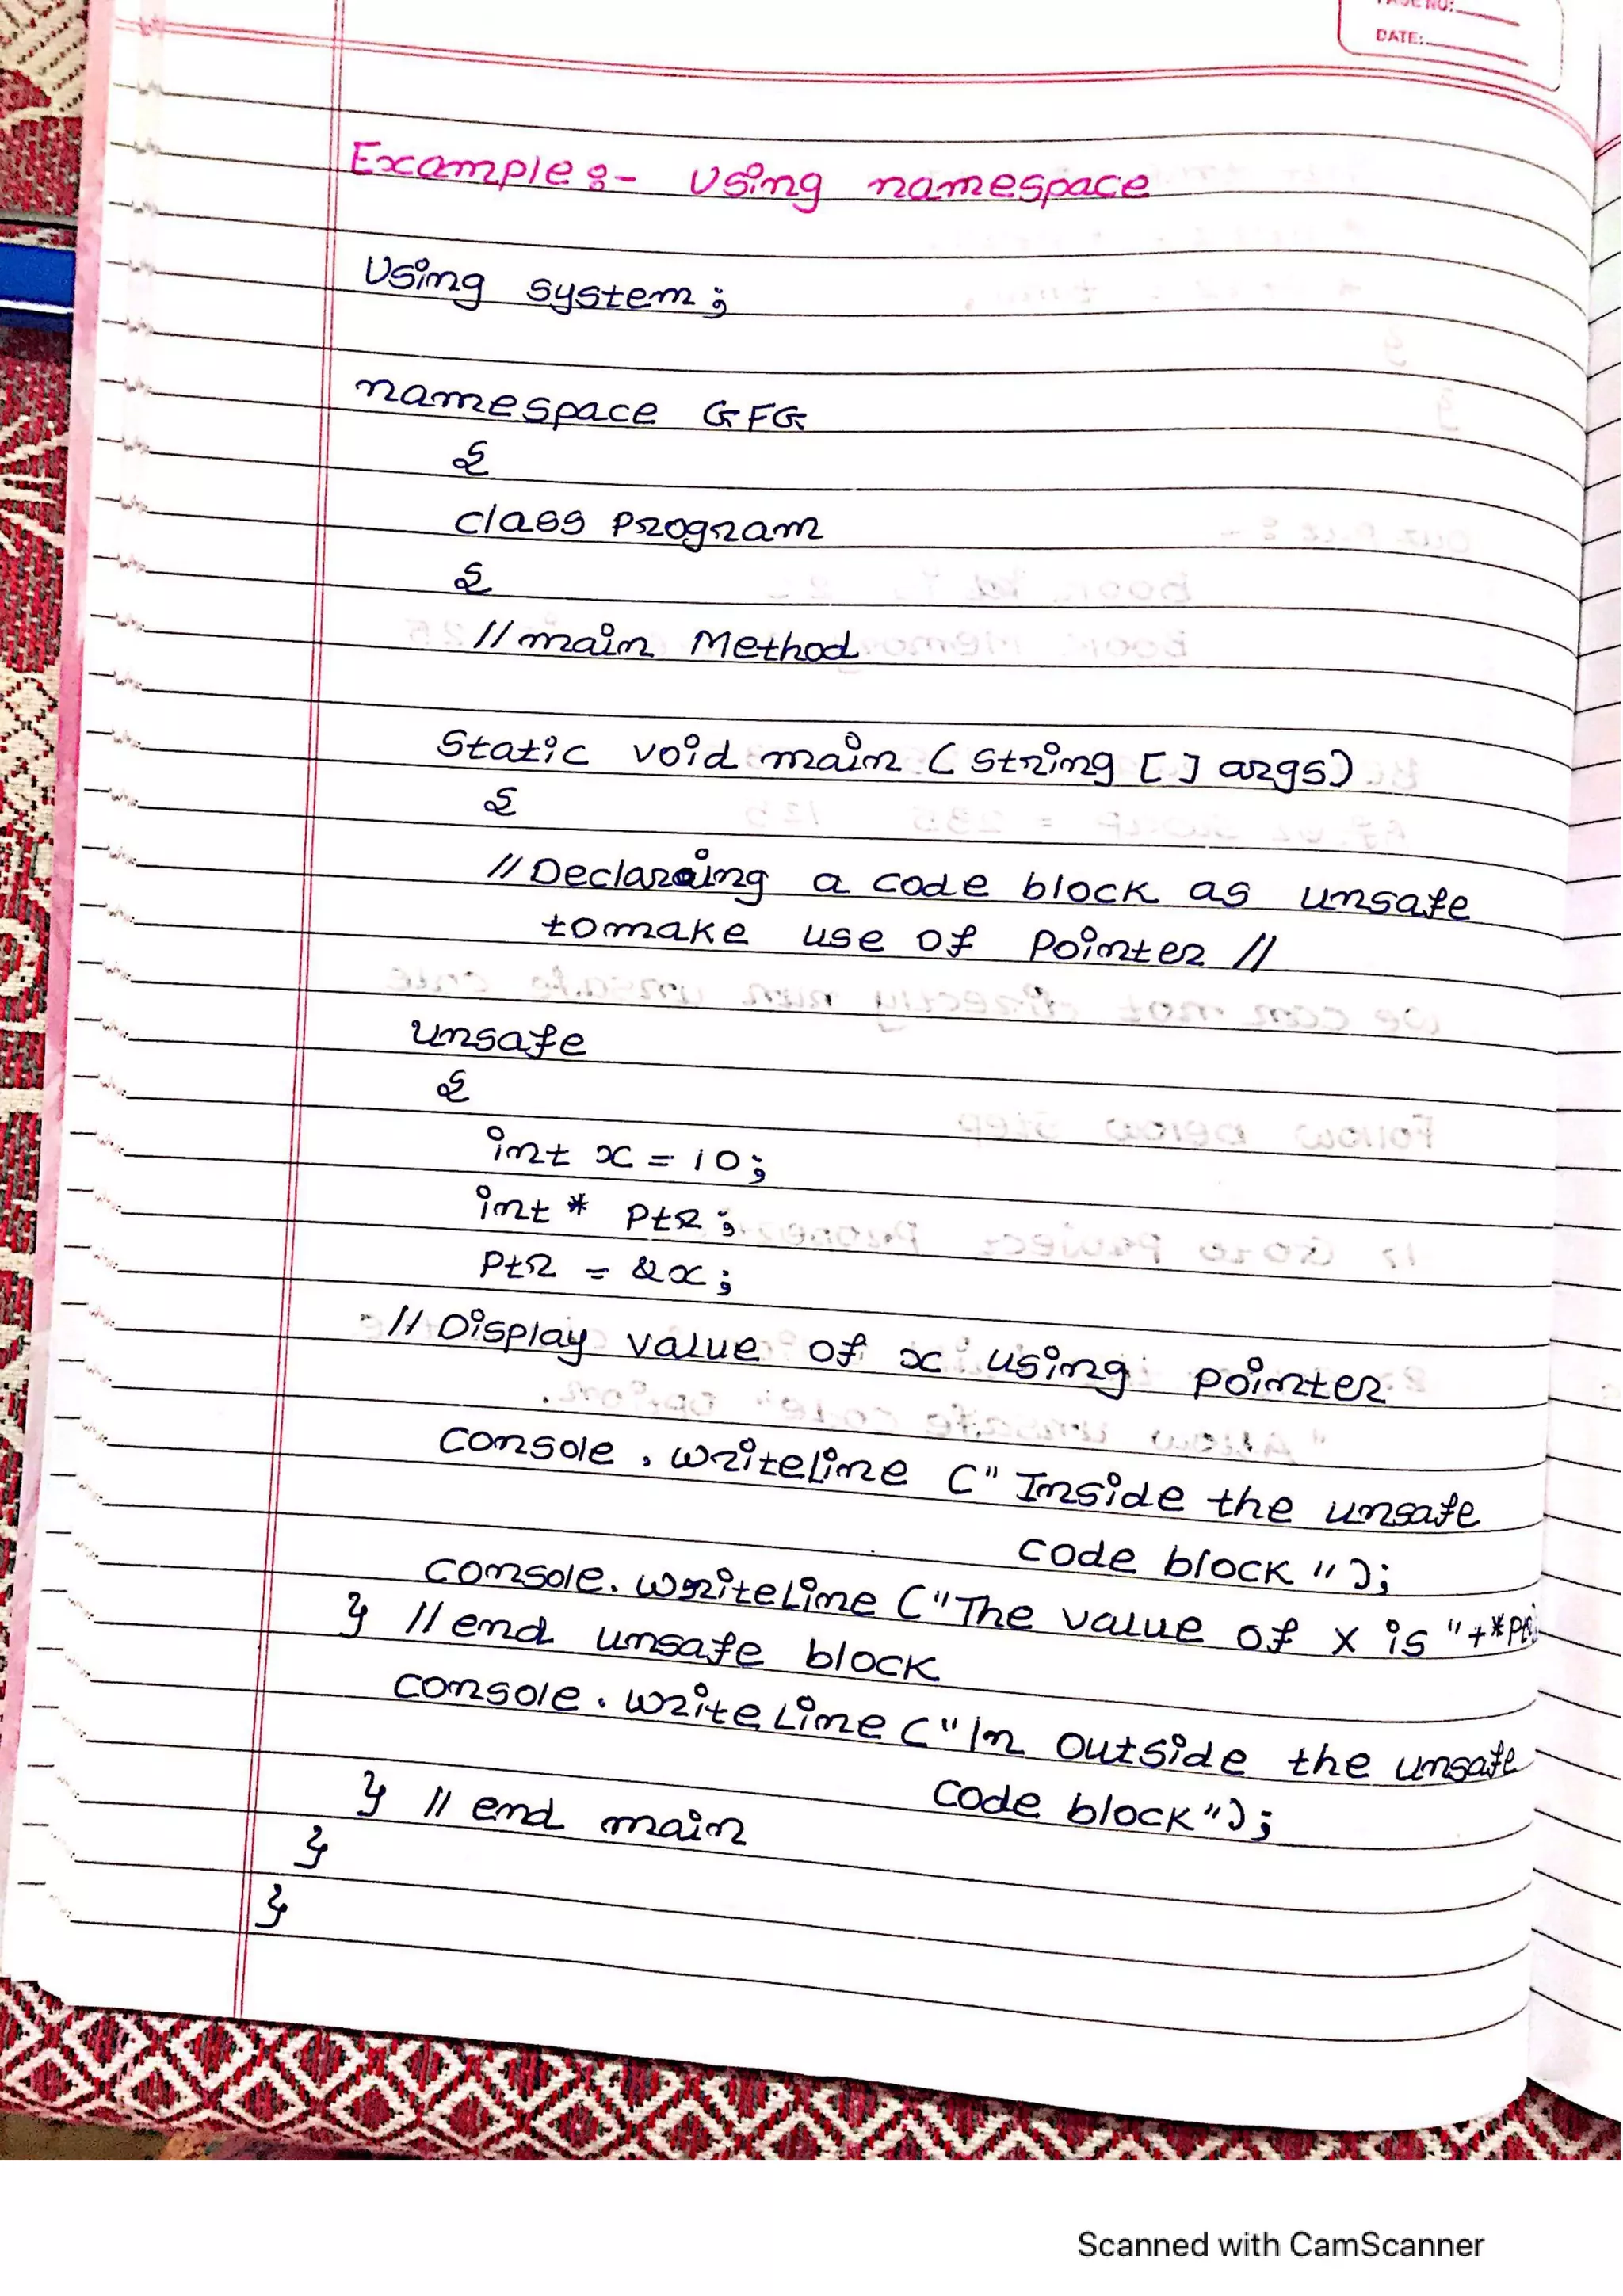 PAGE NO:
DATE:
Example :- Using namespace
Using system ;
namespace GFG
{
class Program
{
// main Method
Static void main ( String [ ] args)
{
// Declaraing a code block as unsafe
tomake use of Pointer //
unsafe
{
int x = 10 ;
int * Ptr ;
Ptr = &x ;
// Display value of x using pointer
console . writeline (" Inside the unsafe
code block ");
console. writeLine ("The value of x is "+*Ptr
} // end unsafe block
console . WriteLine ("In outside the unsafe
code block");
} // end main
}
}
Scanned with CamScanner